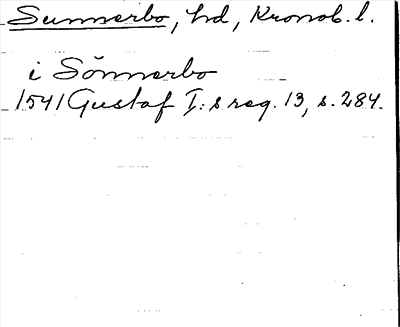 Sunnerbo, hd, Kronob. l.
i Sönnerbo
1541 Gustaf I:s reg. 13, s. 284.